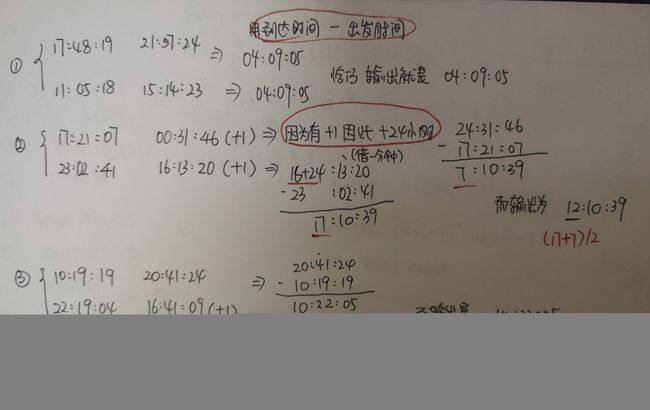 用到达时间 - 出发时间
① 17:48:19 21:57:24 ⇒ 04:09:05
11:05:18 15:14:23 ⇒ 04:09:05
恰巧 输出就是 04:09:05
② 17:21:07 00:31:46 (+1) ⇒ 因为有+1 因此 +24小时
23:02:41 16:13:20 (+1) ⇒
(借一分钟)
16+24:13:20
- 23 :02:41
17:10:39
24:31:46
- 17:21:07
7:10:39
而输出为 12:10:39
(17+7)/2
③ 10:19:19 20:41:24 ⇒
22:19:04 16:41:09 (+1)
20:41:24
- 10:19:19
10:22:05